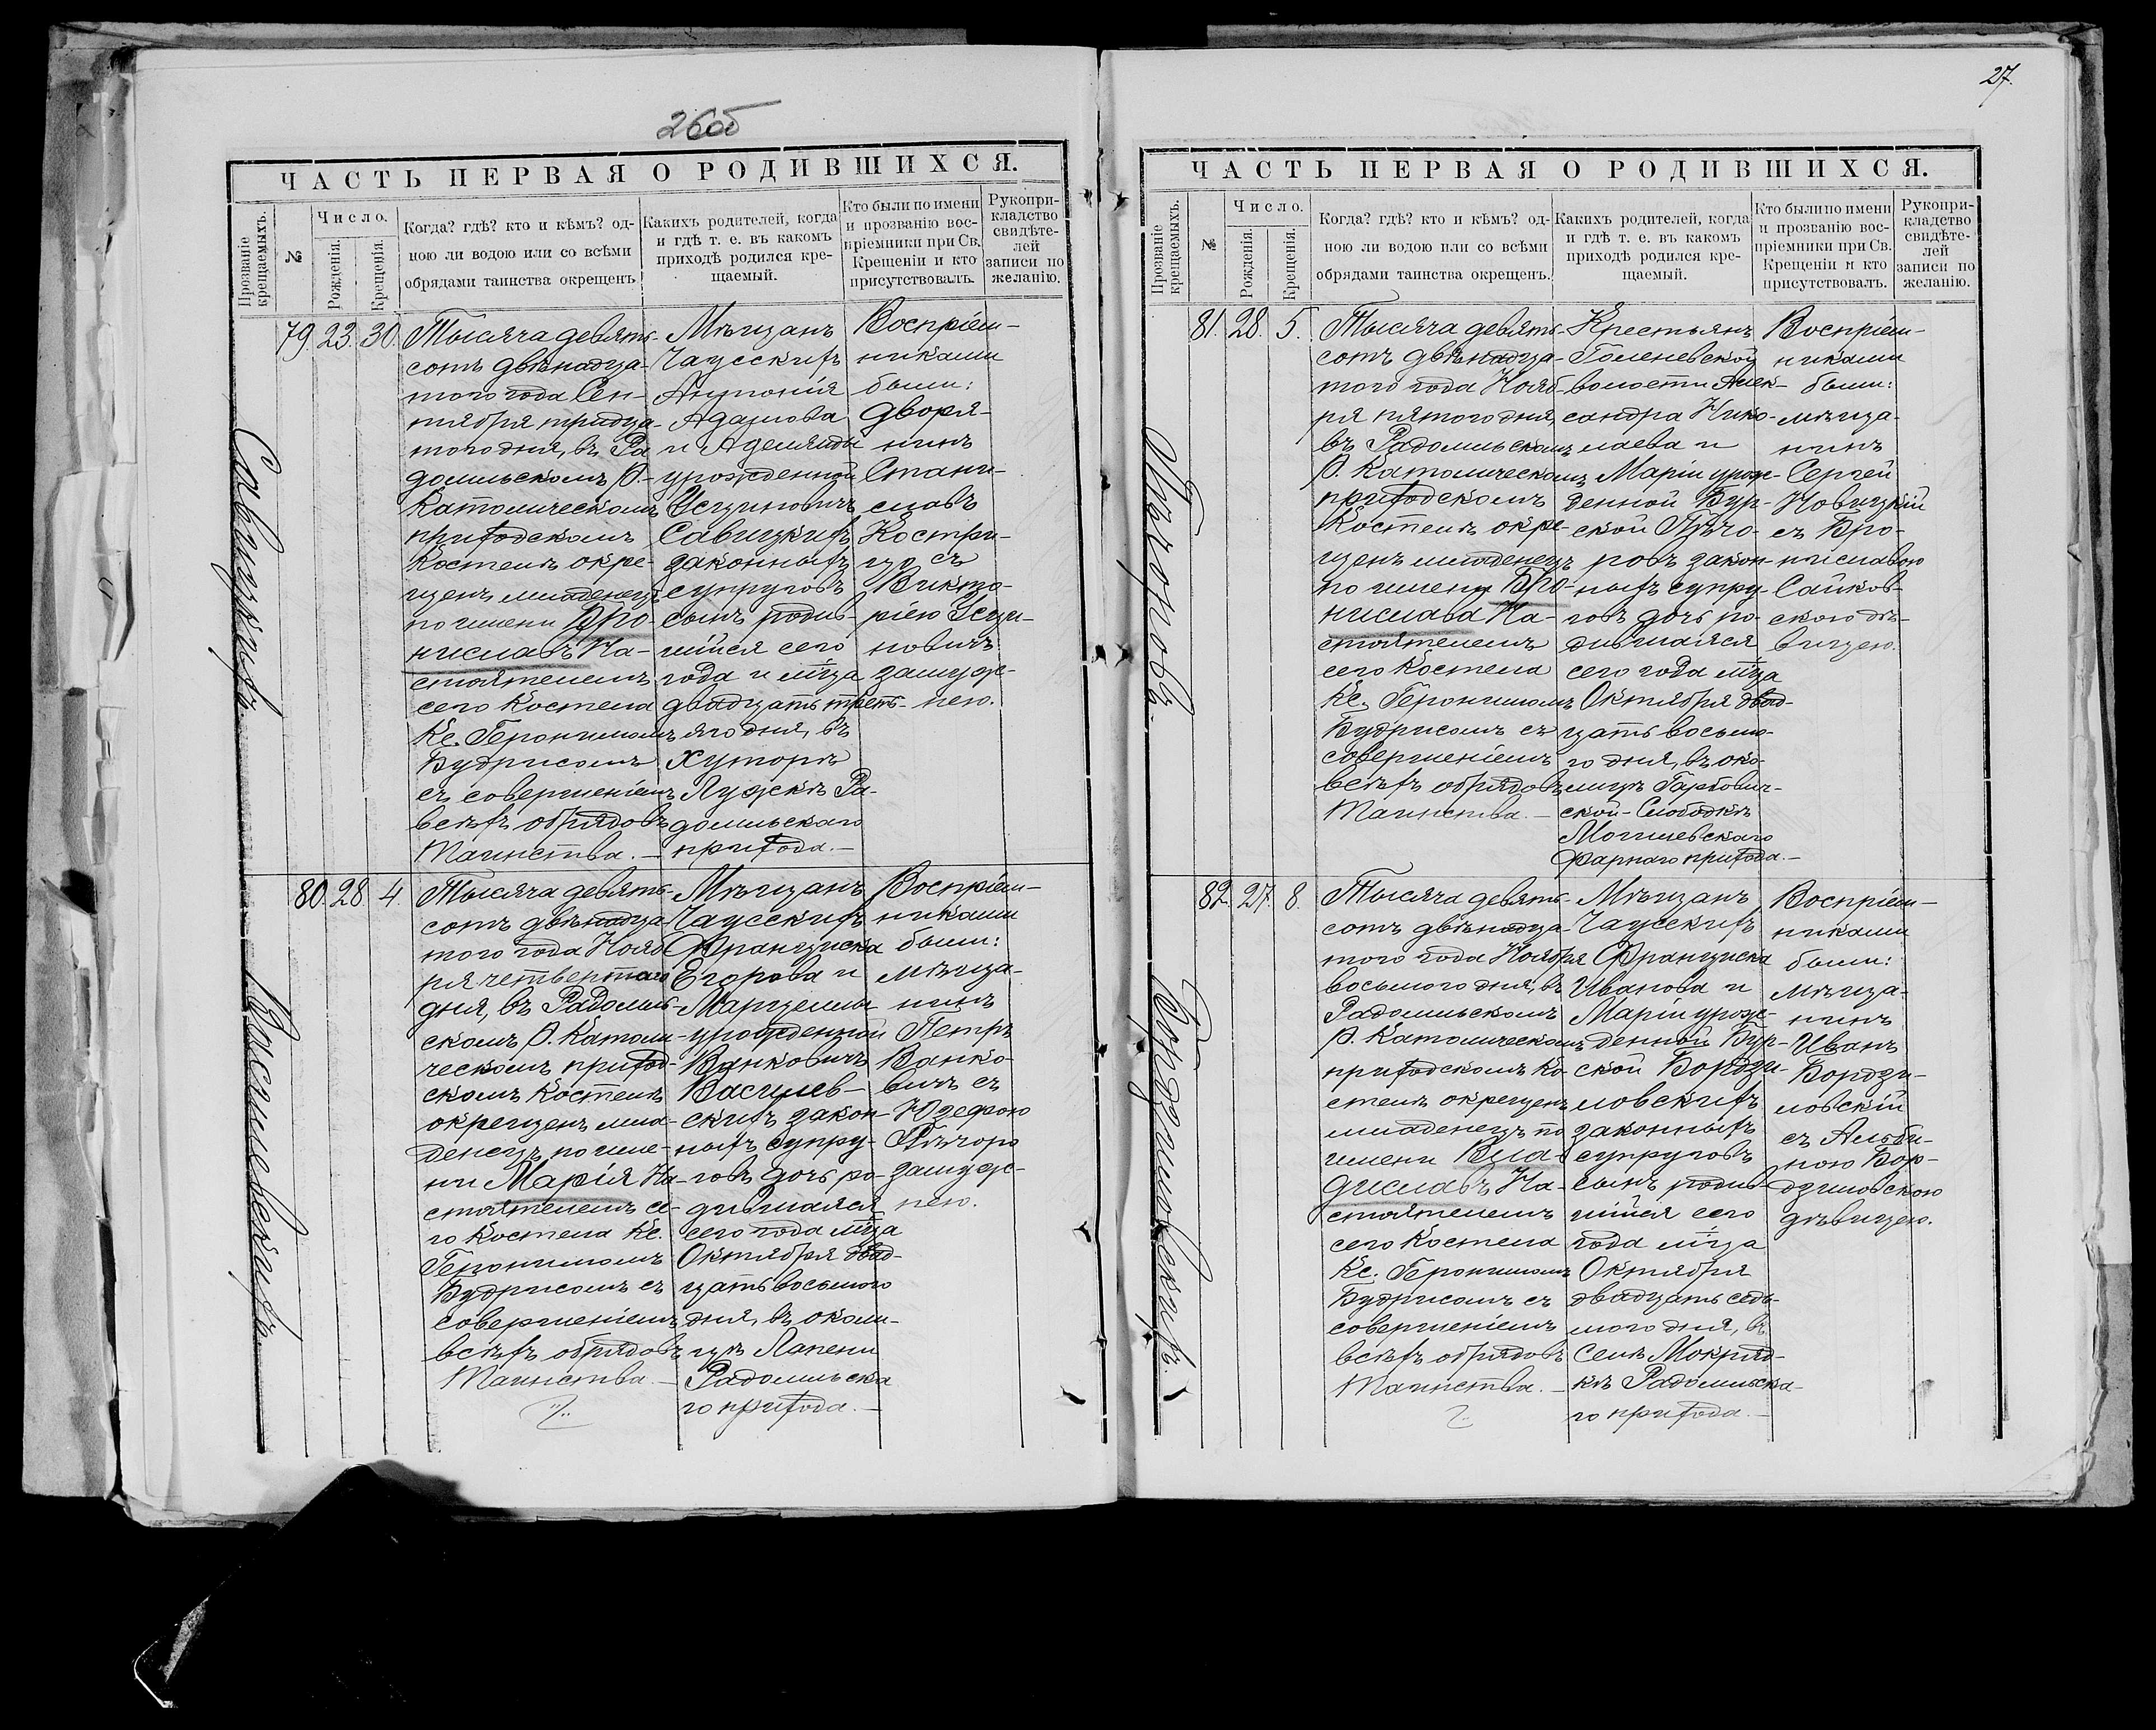 26об
ЧАСТЬ ПЕРВАЯ О РОДИВШИХСЯ.
Прозваніе крещаемыхъ.
№
Число.
Рожденія.
Крещенія.
Когда? гдѣ? кто и кѣмъ? од-
ною ли водою или со всѣми
обрядами таинства окрещенъ.
Какихъ родителей, когда
и гдѣ т. е. въ какомъ
приходѣ родился кре-
щаемый.
Кто были по имени
и прозванію вос-
пріемники при Св.
Крещеніи и кто
присутствовалъ.
Рукопри-
кладство
свидѣте-
лей
записи по
желанію.
Савицкихъ.
79. 23. 30.
Тысяча девять-
сотъ двѣнадца-
того года Сен-
тября тридца-
того дня, въ Ра
домльскомъ Р.-
Католическомъ
приходскомъ
Костелѣ окре-
щенъ младенецъ
по имени Бро-
ниславъ На-
стоятелемъ
сего Костела
Кс. Геронимомъ
Будрисомъ
съ совершеніемъ
всѣхъ обрядовъ
Таинства.—
Мѣщанъ
Чаусскихъ
Антонія
Адамова
и Аделяиды
урожденной
Есциновичъ
Савицкихъ
законныхъ
супруговъ
сынъ родив-
шійся сего
года и м҃ца
двадцать треть-
яго дня, въ
Хуторѣ
Лужкѣ Ра-
домльскаго
прихода.—
Воспріем-
никами
были:
дворя-
нинъ
Стани-
славъ
Костри-
цо съ
Викто-
ріею Есци-
новичъ
замуж-
нею.
Василевскихъ.
80. 28. 4.
Тысяча девять-
сотъ двѣнадца-
того года Нояб-
ря четвертаго
дня, въ Радомль-
скомъ Р. Католи-
ческомъ приход-
скомъ Костелѣ
окрещенъ мла-
денецъ по име-
ни Марія На-
стоятелемъ се-
го Костела Кс.
Геронимомъ
Будрисомъ съ
совершеніемъ
всѣхъ обрядовъ
Таинства.—
Мѣщанъ
Чаусскихъ
Францишка
Егорова и
Марцеллы
урожденной
Ванковичъ
Василев-
скихъ закон-
ныхъ супру-
говъ дочь ро-
дившаяся
сего года м҃ца
Октября двад-
цать восьмого
дня, въ околи-
цѣ Лапени
Радомльска
го прихода.—
Воспріем-
никами
были:
мѣща-
нинъ
Петръ
Ванко-
вичъ съ
Юзефою
Пѣчоро
замуж-
нею.
27.
ЧАСТЬ ПЕРВАЯ О РОДИВШИХСЯ.
Прозваніе крещаемыхъ.
№
Число.
Рожденія.
Крещенія.
Когда? гдѣ? кто и кѣмъ? од-
ною ли водою или со всѣми
обрядами таинства окрещенъ.
Какихъ родителей, когда
и гдѣ т. е. въ какомъ
приходѣ родился кре-
щаемый.
Кто были по имени
и прозванію вос-
пріемники при Св.
Крещеніи и кто
присутствовалъ.
Рукопри-
кладство
свидѣте-
лей
записи по
желанію.
Пѣчоровъ.
81. 28. 5.
Тысяча девять-
сотъ двѣнадца-
того года Нояб-
ря пятого дня,
въ Радомльскомъ
Р. Католическомъ
приходскомъ
Костелѣ окре-
щенъ младенецъ
по имени Бро-
нислава На-
стоятелемъ
сего Костела
Кс. Геронимомъ
Будрисомъ съ
совершеніемъ
всѣхъ обрядовъ
Таинства.—
Крестьянъ
Голеневской
волости Алек-
сандра Нико-
лаева и
Маріи урож-
денной Бур-
ской Пѣчо-
ровъ закон-
ныхъ супру-
говъ дочь ро-
дившаяся
сего года м҃ца
Октября двад-
цать восьмо-
го дня, въ око-
лицѣ Гарбович-
ской-Слободкѣ
Могилевскаго
фарнаго прихода.—
Воспріем-
никами
были:
мѣща-
нинъ
Сергей
Новицкій
съ Бро-
ниславою
Сайков-
скою дѣ-
вицею.
Бордзиловскихъ.
82. 27. 8.
Тысяча девять-
сотъ двѣнадца-
того года Ноября
восьмого дня, въ
Радомльскомъ
Р. Католическомъ
приходскомъ Ко-
стелѣ окрещенъ
младенецъ по
имени Вла-
диславъ На-
стоятелемъ
сего Костела
Кс. Геронимомъ
Будрисомъ съ
совершеніемъ
всѣхъ обрядовъ
Таинства.—
Мѣщанъ
Чаусскихъ
Францишка
Иванова и
Маріи урож-
денной Бур-
ской Бордзи-
ловскихъ
законныхъ
супруговъ
сынъ родив-
шійся сего
года м҃ца
Октября
двадцать седь-
мого дня, въ
Селѣ Мокряд-
кѣ Радомльска-
го прихода.—
Воспріем-
никами
были:
мѣща-
нинъ
Иванъ
Бордзи-
ловскій
съ Альби-
ною Бор-
дзиловскою
дѣвицею.